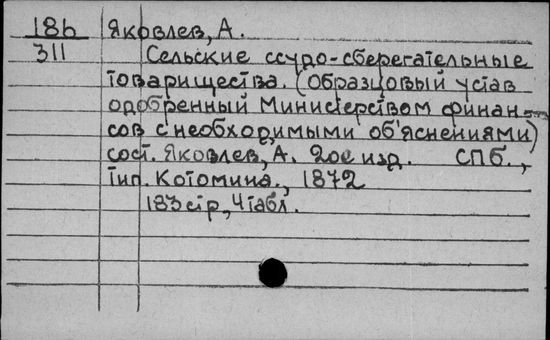 18б Яковлев, А.
311 Сельские ссудо-сберегательные
товарищества. (Образцовый устав
одобренный Министерством финан-
сов с необходимыми об'яснениями)
сост. Яковлев, А. 2ое изд. СПб.,
тип. Котомина., 1872
183 стр, 4 табл.